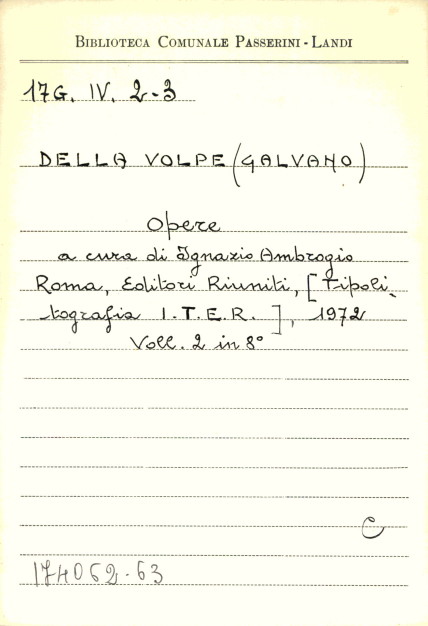 BIBLIOTECA COMUNALE PASSERINI - LANDI
17G. IV. 2-3
DELLA VOLPE (GALVANO)
Opere
a cura di Ignazio Ambrogio
Roma, Editori Riuniti, [Tipoli-
tografia I.T.E.R.], 1972
Voll. 2 in 8°
C
174062-63